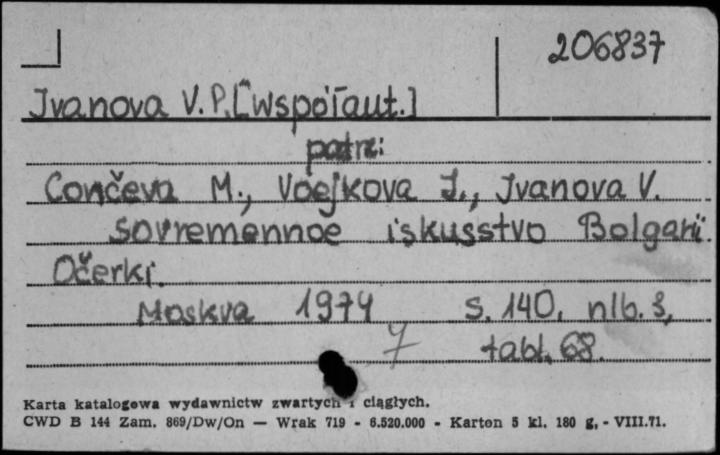 206837
Ivanova V.P. [współaut.]
patrz:
Cončeva M., Voejkova I., Ivanova V.
Sovremennoe iskusstvo Bolgarii.
Očerki.
Moskva 1974 s. 140, nlb. 3,
7 tabl. 68.
Karta katalogowa wydawnictw zwartych i ciągłych.
CWD B 144 Zam. 869/Dw/On — Wrak 719 - 6.520.000 - Karton 5 kl. 180 g, - VIII.71.